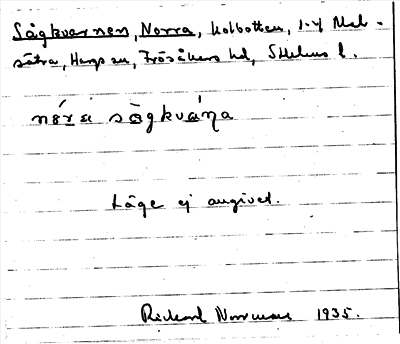 Sågkvarnen, Norra, kolbotten, 1-4 Mel-
sätra, Hargs sn, Frösåkers hd, Sthlms l.
nǿra sågkvá̄ɳa
Läge ej angivet.
Rickard Norrman 1935.